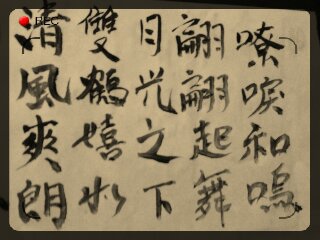 REC
嘹唳和鳴
翩翩起舞
月光之下
雙鶴嬉如
清風爽朗